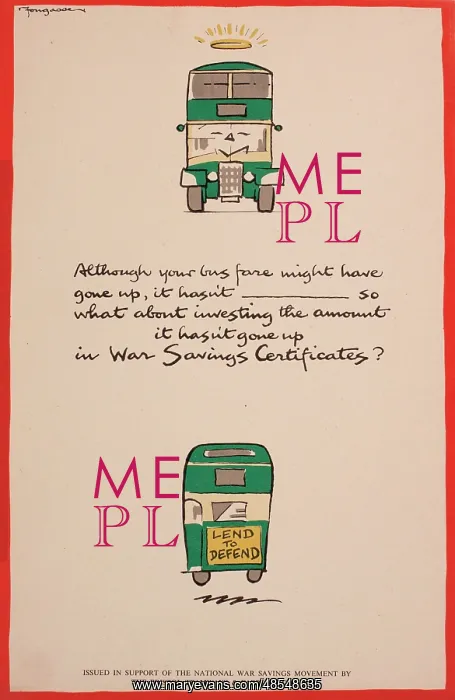 Fougasse
ME
PL
Although your bus fare might have
gone up, it hasn't ________ so
what about investing the amount
it hasn't gone up
in War Savings Certificates?
ME
PL
LEND
TO
DEFEND
ISSUED IN SUPPORT OF THE NATIONAL WAR SAVINGS MOVEMENT BY
www.maryevans.com/48548635